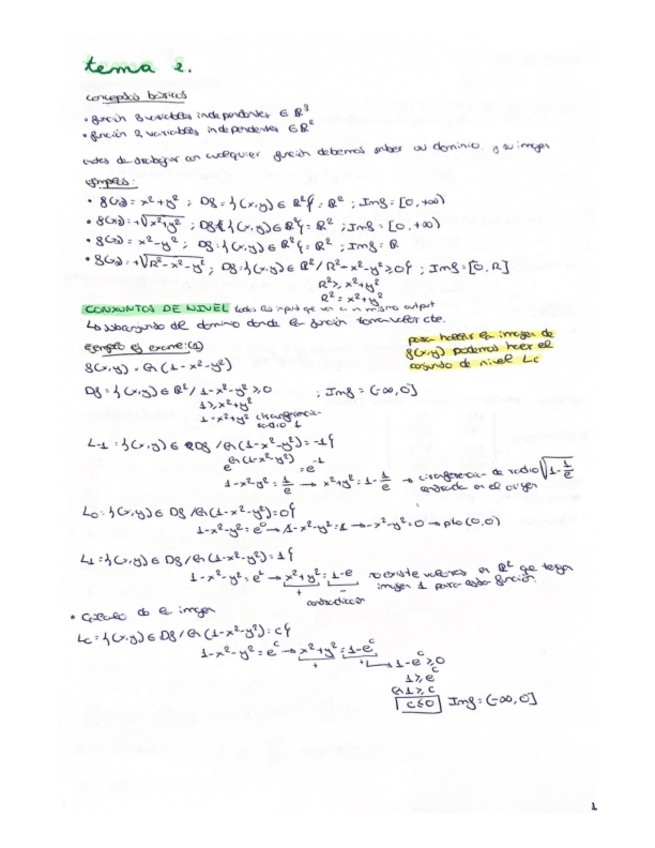 tema 2.
conceptos básicos
• función 3 variables independientes ∈ R³
• función 2 variables independientes ∈ R²
antes de trabajar con cualquier función debemos saber su dominio, y su imagen
ejemplos:
• f(x) = x²+y² ; Df = {(x,y) ∈ R²} = R² ; Imf = [0,+∞)
• f(x) = +√x²+y² ; Df {(x,y) ∈ R²} = R² ; Imf = [0,+∞)
• f(x) = x²-y² ; Df = {(x,y) ∈ R²} = R² ; Imf = R
• f(x) = +√R²-x²-y² ; Df = {(x,y) ∈ R² / R²-x²-y² ≥ 0} ; Imf = [0,R]
R² ≥ x²+y²
R² = x²+y²
CONJUNTOS DE NIVEL todos los input que van a un mismo output
↳ subconjunto del dominio donde la función toma valor cte.
para hallar la imagen de
f(x,y) podemos hacer el
conjunto de nivel Lc
Ejemplo ej examen: (1)
f(x,y) = ln(1-x²-y²)
Df = {(x,y) ∈ R² / 1-x²-y² ≥ 0 ; Imf = (-∞,0]
1 ≥ x²+y²
1 = x²+y² circunferencia
radio 1
L-1 = {(x,y) ∈ Df / ln(1-x²-y²) = -1}
e^ln(1-x²-y²) = e^-1
1-x²-y² = 1/e → x²+y² = 1-1/e → circunferencia de radio √1-1/e
centrada en el origen
L0 = {(x,y) ∈ Df / ln(1-x²-y²) = 0}
1-x²-y² = e⁰ → 1-x²-y² = 1 → -x²-y² = 0 → pto (0,0)
L1 = {(x,y) ∈ Df / ln(1-x²-y²) = 1}
1-x²-y² = e¹ → x²+y² = 1-e no existe valores en R² que tenga
+ - imagen 1 para esta función.
contradicción
• Cálculo de la imagen
Lc = {(x,y) ∈ Df / ln(1-x²-y²) = c}
1-x²-y² = e^c → x²+y² = 1-e^c
+ + → 1-e^c ≥ 0
1 ≥ e^c
ln 1 ≥ c
c ≤ 0 Imf = (-∞,0]
1